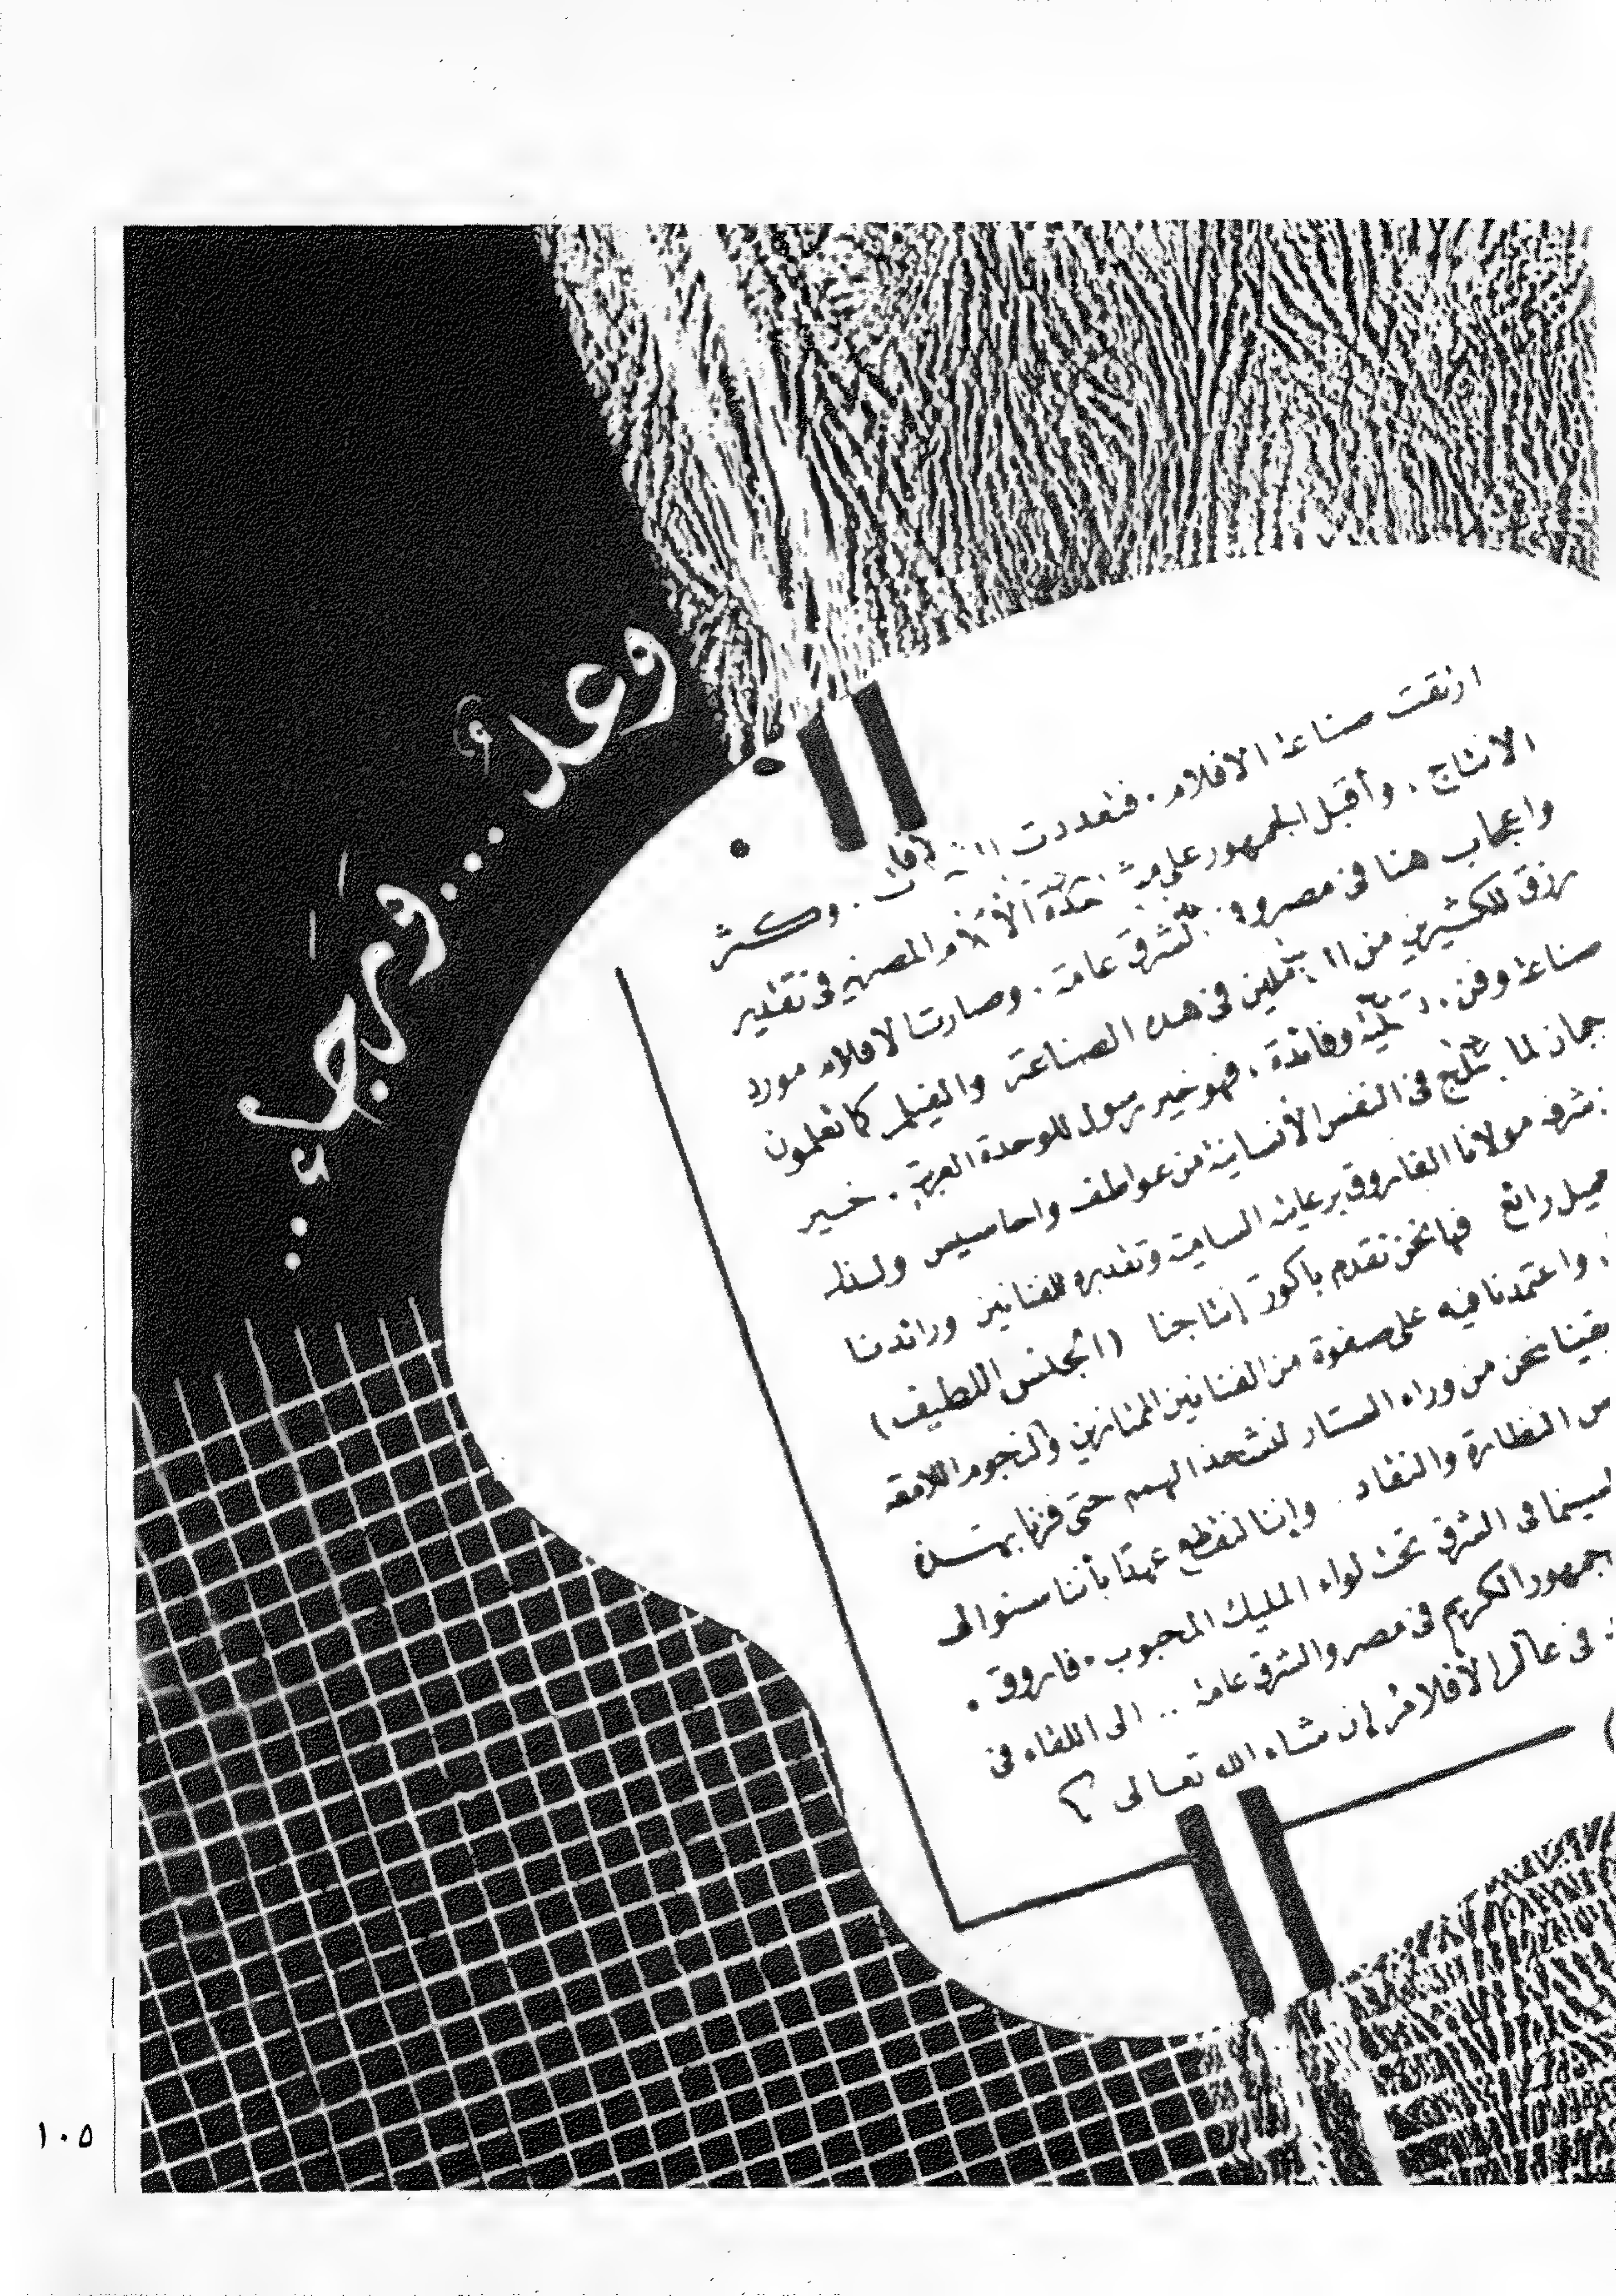 وعدٌ... ورجاء..
ارتقت صناعة الافلام. فتعددت وكثر
الانتاج. وأقبل الجمهور على الأفلام المصرية فى تقدير
واعجاب هنا فى مصر و الشرق عامة. وصارت الافلام مورد
رزق للكثيرين من فى هذه الصناعة والفيلم كما تعلمون
صناعة وفن. وفائدة. فهو خير رسول للوحدة العربية. خير
لما فى النفس الأنسانية من عواطف واحاسيس
مولانا الفاروق برعايته السامية وتقديره للفنانين ورائدنا
رائع فها نحن نقدم باكورة إنتاجنا (الجنس اللطيف)
واعتمدنا فيه على صفوة من الفنانين الممتازين والنجوم اللامعة
نحن من وراء الستار لنشحذ الهمم حتى فزنا
النظارة والنقاد. وإننا لنقطع عهدًا بأننا سنوالى
فى الشرق تحت لواء المليك المحبوب. فاروق.
الكريم فى مصر والشرق عامة.. الى اللقاء فى
فى عالم الأفلام إن شاء الله تعالى
١٠٥